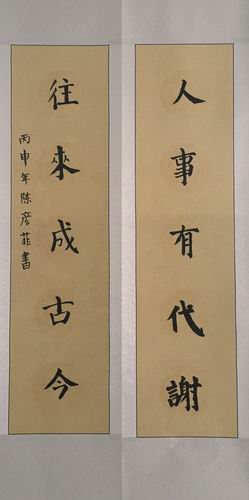 人事有代謝
往來成古今
丙申年陈彦菲書